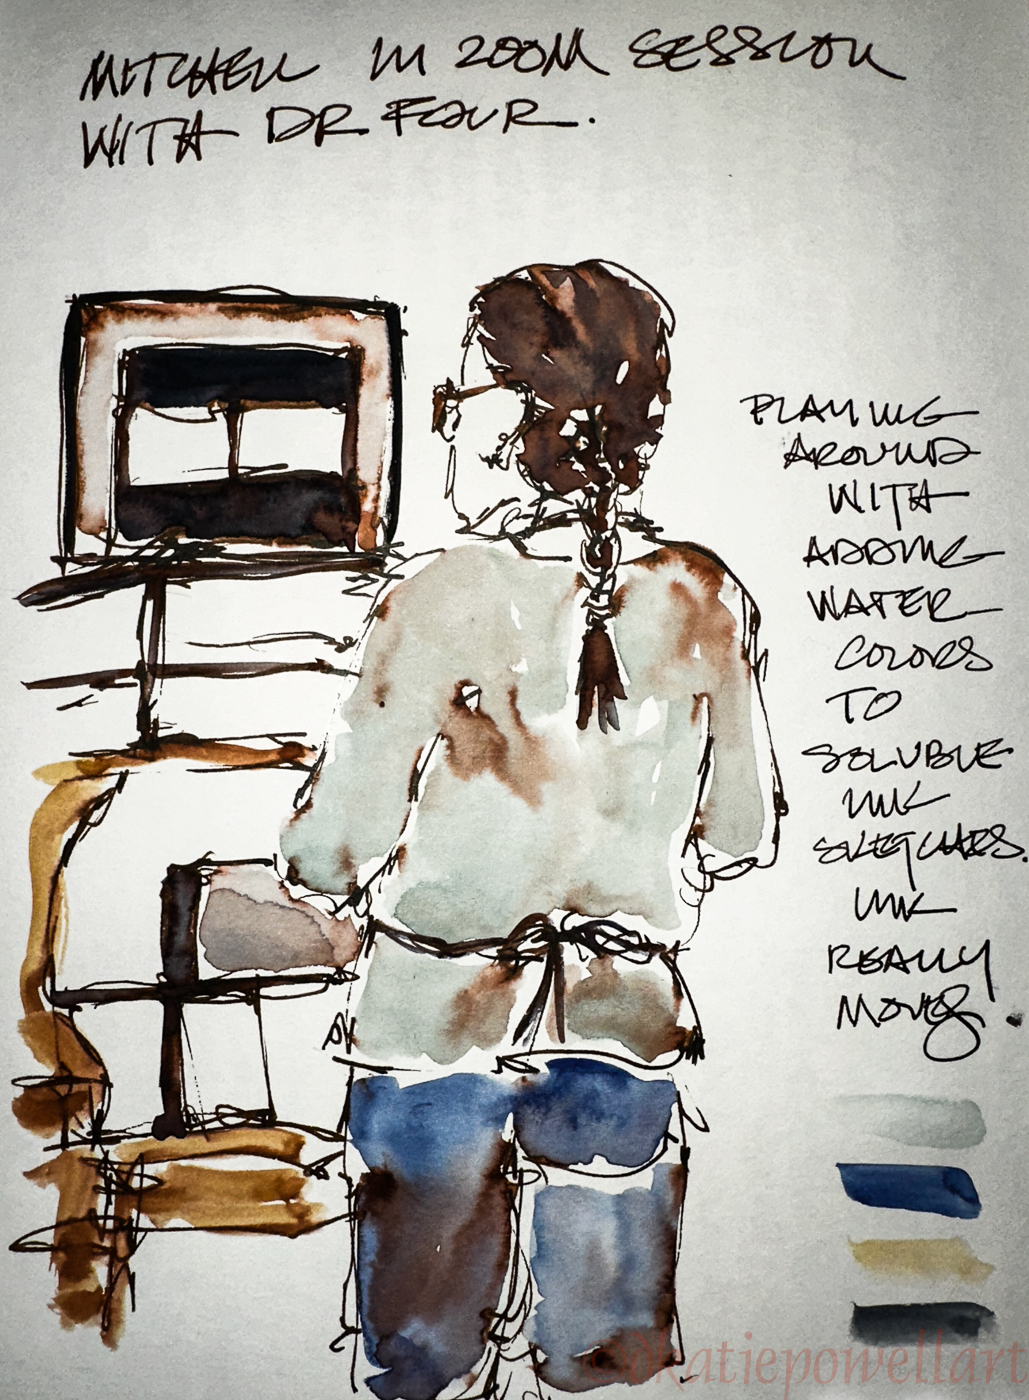 MITCHELL IN ZOOM SESSION
WITH DR FOUR.
PLAYING
AROUND
WITH
ADDING
WATER
COLORS
TO
SOLUBLE
INK
SKETCHES.
INK
REALLY
MOVES!
©katiepowellart